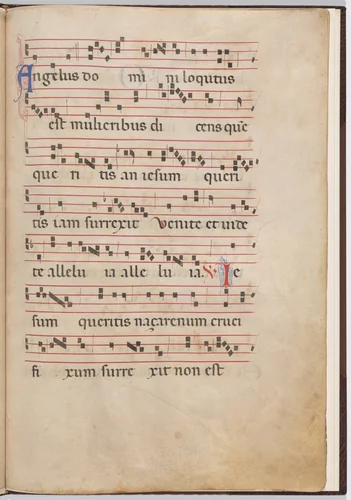 Angelus do mi ni loqutus
est mulieribus di cens quē
que ri tis an iesum queri
tis iam surrexit Venite et uide
te allelu ia alle lu ia. ℣. Ie
sum queritis naçarenum cruci
fi xum surre xit non est